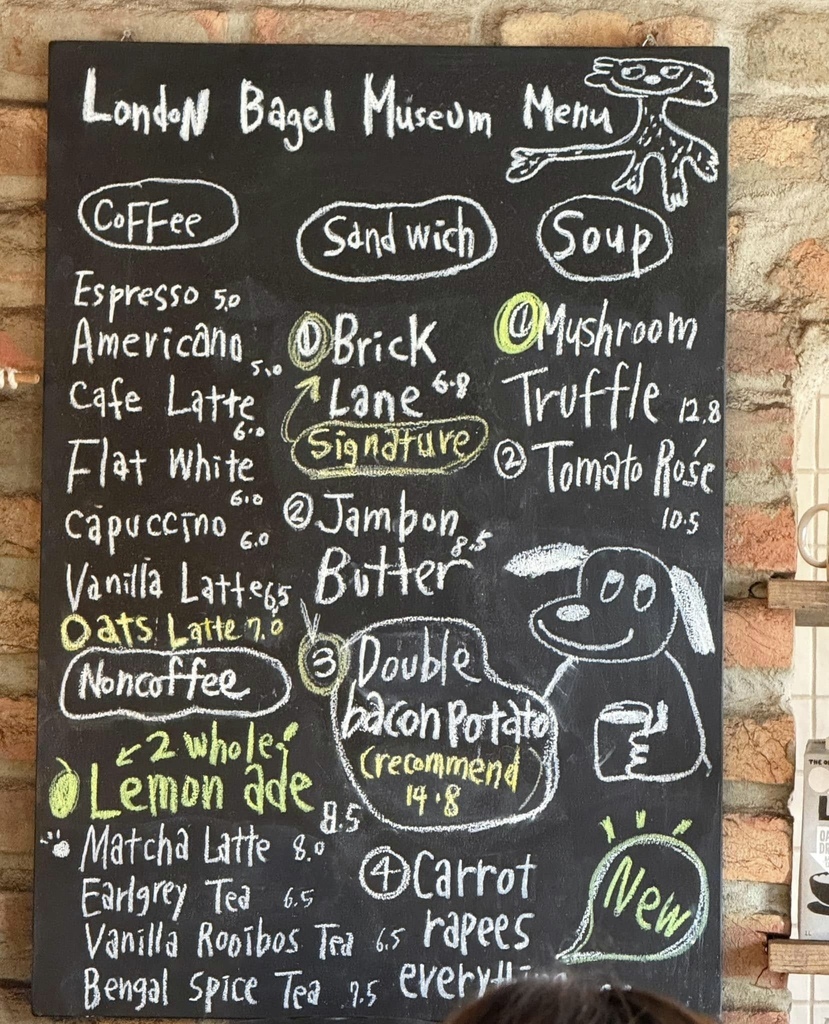 London Bagel Museum Menu
Coffee
Espresso 5.0
Americano 5.0
Cafe Latte 6.0
Flat White 6.0
Capuccino 6.0
Vanilla Latte 6.5
Oats Latte 7.0
Noncoffee
2 whole
Lemon ade 8.5
Matcha Latte 8.0
Earlgrey Tea 6.5
Vanilla Rooibos Tea 6.5
Bengal Spice Tea 7.5
Sandwich
① Brick
Lane 6.8
Signature
② Jambon
Butter 8.5
③ Double
bacon potato
(recommend
14.8
④ Carrot
rapees
Soup
① Mushroom
Truffle 12.8
② Tomato Rośe
10.5
New